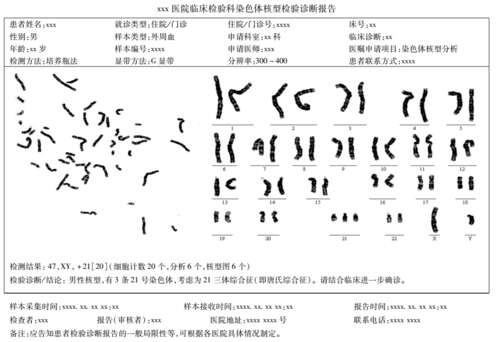 xxx 医院临床检验科染色体核型检验诊断报告
患者姓名:xxx 就诊类型:住院/门诊 住院/门诊号:xxxx 床号:xx
性别:男 样本类型:外周血 申请科室:xx 科 临床诊断:xx
年龄:xx 岁 样本编号:xxxx 申请医师:xxx 医嘱申请项目:染色体核型分析
检测方法:培养瓶法 显带方法:G 显带 分辨率:300~400 患者联系方式:xxxx
1 2 3 4 5
6 7 8 9 10 11 12
13 14 15 16 17 18
19 20 21 22 X Y
检测结果: 47,XY, +21[20](细胞计数 20 个,分析 6 个,核型图 6 个)
检验诊断/结论: 男性核型,有 3 条 21 号染色体,考虑为 21 三体综合征(即唐氏综合征)。请结合临床进一步确诊。
样本采集时间:xxxx. xx. xx xx:xx 样本接收时间:xxxx. xx. xx xx:xx 报告时间:xxxx. xx. xx xx:xx
检查者:xxx 报告(审核者):xxx 医院地址:xxxx xxxx 号 联系电话:xxxx xxxx
备注:应告知患者检验诊断报告的一般局限性等,可根据各医院具体情况制定。